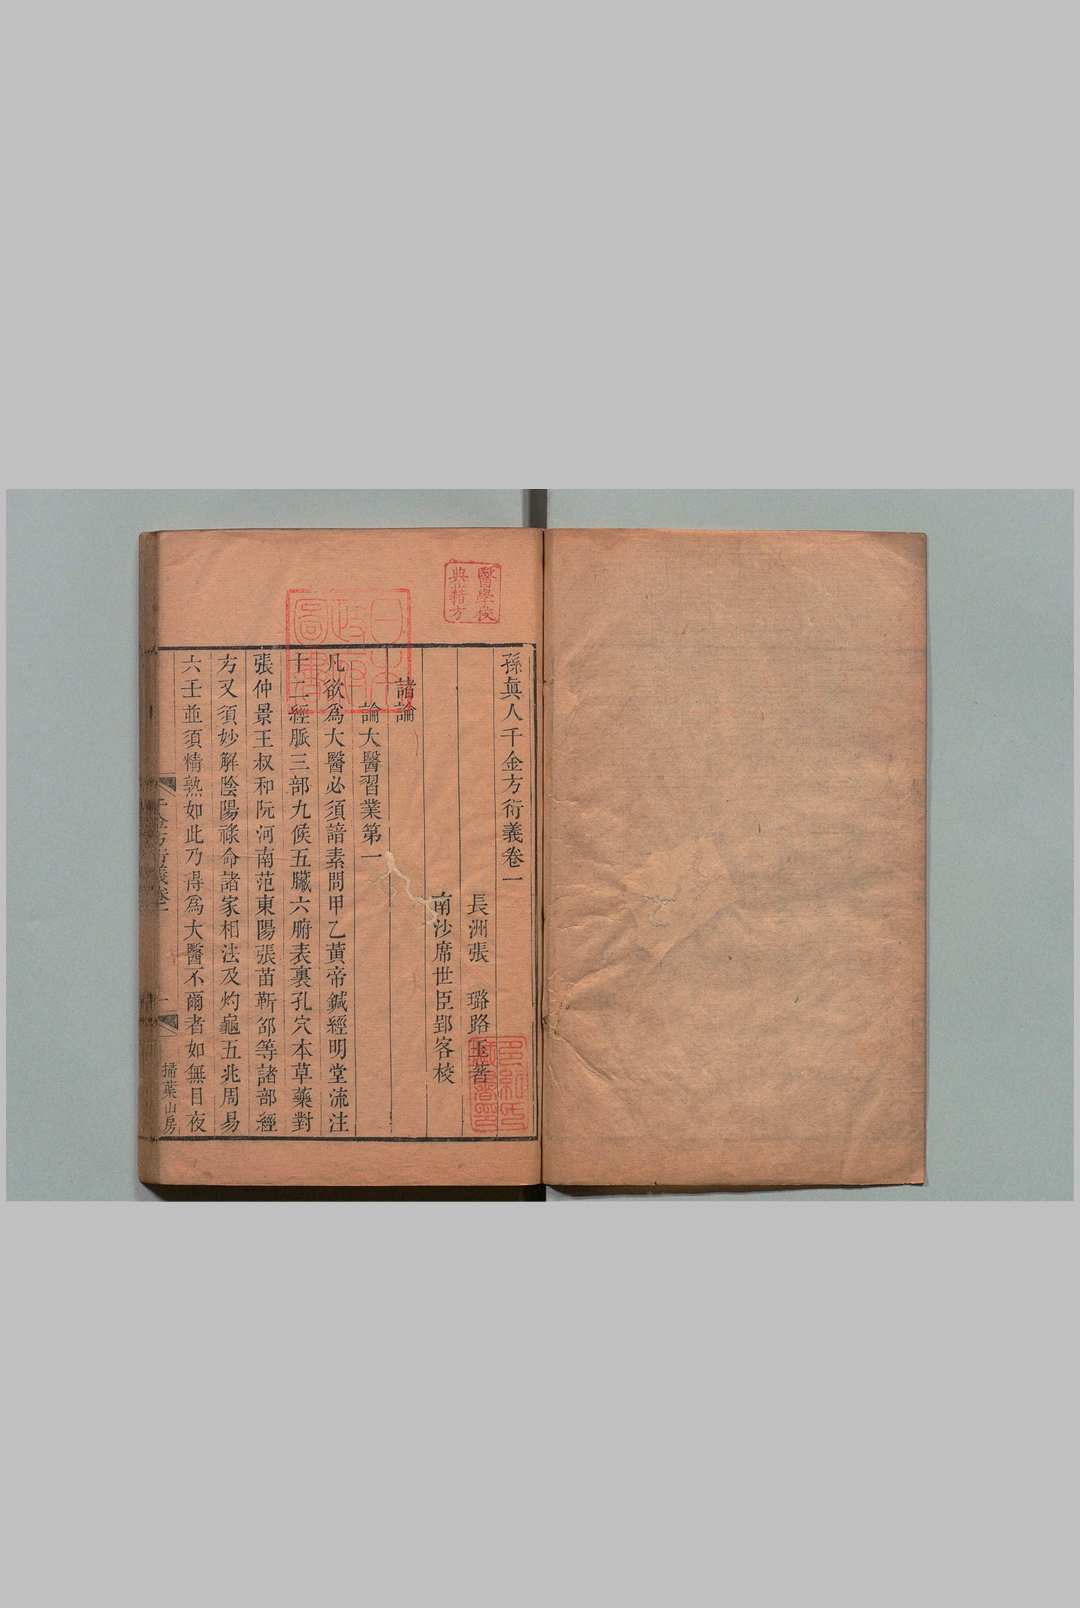 孫眞人千金方衍義卷一
長洲張　璐路玉著
南沙席世臣郢客校
諸論
論大醫習業第一
凡欲爲大醫必須諳素問甲乙黃帝鍼經明堂流注
十二經脈三部九候五臟六腑表裏孔穴本草藥對
張仲景王叔和阮河南范東陽張苗靳邵等諸部經
方又須妙解陰陽祿命諸家相法及灼龜五兆周易
六壬並須精熟如此乃得爲大醫不爾者如無目夜
千金方衍義卷一
一
掃葉山房
醫學校
典藉方
日本
政府
圖書